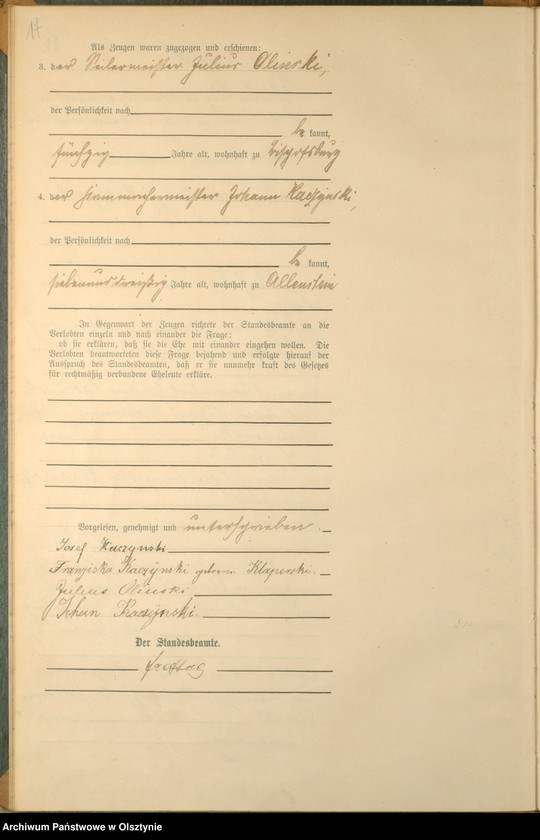 17
Als Zeugen waren zugezogen und erschienen:
3. der Seilermeister Julius Olinski,
der Persönlichkeit nach
be kannt,
fünfzig Jahre alt, wohnhaft zu Bischofsburg
4. der Johann Kaczynski,
der Persönlichkeit nach
be kannt,
siebenunddreißig Jahre alt, wohnhaft zu Allenstein
In Gegenwart der Zeugen richtete der Standesbeamte an die
Verlobten einzeln und nach einander die Frage:
ob sie erklären, daß sie die Ehe mit einander eingehen wollen. Die
Verlobten beantworteten diese Frage bejahend und erfolgte hierauf der
Ausspruch des Standesbeamten, daß er sie nunmehr kraft des Gesetzes
für rechtmäßig verbundene Eheleute erkläre.
Vorgelesen, genehmigt und unterschrieben.
Josef Kaczynski
Franziska Kaczynski geborene
Julius Olinski
Johan Kaczynski.
Der Standesbeamte.
Archiwum Państwowe w Olsztynie